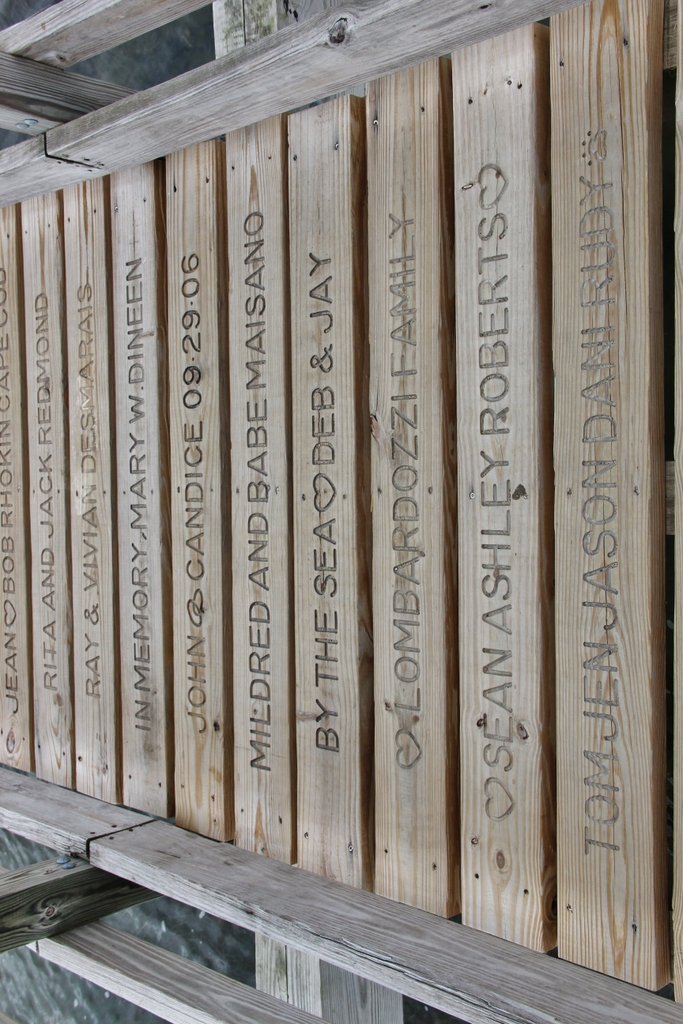 JEAN♡BOB RHOKIN CAPE COD
RITA AND JACK REDMOND
RAY & VIVIAN DESMARAIS
IN MEMORY, MARY W. DINEEN
JOHN & CANDICE 09·29·06
MILDRED AND BABE MAISANO
BY THE SEA♡DEB & JAY
♡LOMBARDOZZI FAMILY
♡SEAN ASHLEY ROBERTS♡
TOM JEN JASON DANI RUDY